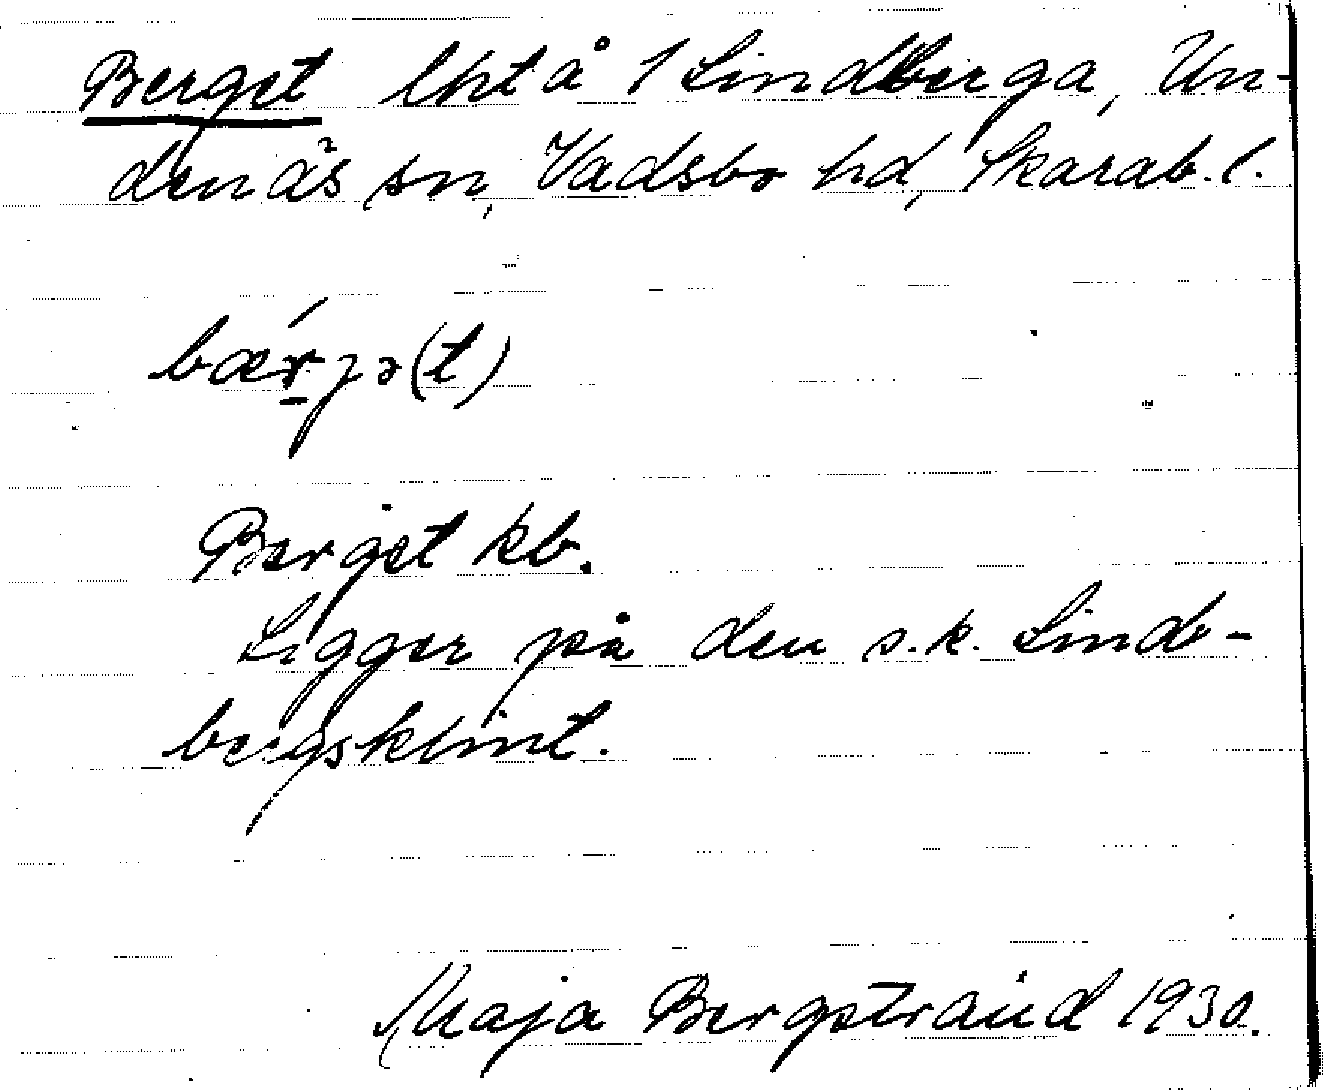 Berget lht å 1 Lindberga, Un-
denäs sn, Vadsbo hd, Skarab. l.
bæ̀rjə(t)
Berget kb.
Ligger på den s.k. Lind-
bergsklint.
Maja Bergstrand 1930.